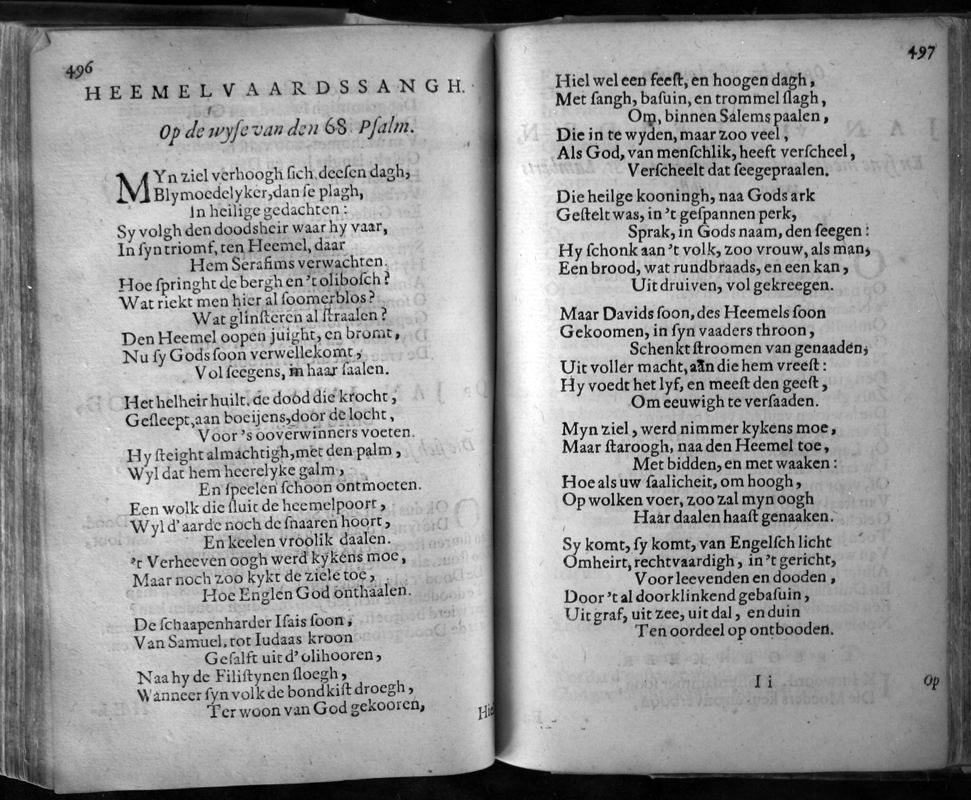 496
HEEMELVAARDSSANGH.
Op de wyſe van den 68 Pſalm.
MYn ziel verhoogh ſich deeſen dagh,
Blymoedelyker, dan ſe plagh,
In heilige gedachten:
Sy volgh den doodsheir waar hy vaar,
In ſyn triomf, ten Heemel, daar
Hem Serafims verwachten.
Hoe ſpringht de bergh en 't oliboſch?
Wat riekt men hier al ſoomerblos?
Wat glinſteren al ſtraalen?
Den Heemel oopen juight, en bromt,
Nu ſy Gods ſoon verwellekomt,
Vol ſeegens, in haar ſaalen.
Het helheir huilt, de dood die krocht,
Geſleept, aan boeijens, door de locht,
Voor 's ooverwinners voeten.
Hy ſteight almachtigh, met den palm,
Wyl dat hem heerelyke galm,
En ſpeelen ſchoon ontmoeten.
Een wolk die ſluit de heemelpoort,
Wyl d' aarde noch de ſnaaren hoort,
En keelen vroolik daalen.
't Verheeven oogh werd kykens moe,
Maar noch zoo kykt de ziele toe,
Hoe Englen God onthaalen.
De ſchaapenharder Iſais ſoon,
Van Samuel, tot Iudaas kroon
Geſalft uit d' olihooren,
Naa hy de Filiſtynen ſloegh,
Wanneer ſyn volk de bondkiſt droegh,
Ter woon van God gekooren,
Hiel
497
Hiel wel een feeſt, en hoogen dagh,
Met ſangh, baſuin, en trommel ſlagh,
Om, binnen Salems paalen,
Die in te wyden, maar zoo veel,
Als God, van menſchlik, heeft verſcheel,
Verſcheelt dat ſeegepraalen.
Die heilge kooningh, naa Gods ark
Geſtelt was, in 't geſpannen perk,
Sprak, in Gods naam, den ſeegen:
Hy ſchonk aan 't volk, zoo vrouw, als man,
Een brood, wat rundbraads, en een kan,
Uit druiven, vol gekreegen.
Maar Davids ſoon, des Heemels ſoon
Gekoomen, in ſyn vaaders throon,
Schenkt ſtroomen van genaaden,
Uit voller macht, aan die hem vreeſt:
Hy voedt het lyf, en meeſt den geeſt,
Om eeuwigh te verſaaden.
Myn ziel, werd nimmer kykens moe,
Maar ſtaroogh, naa den Heemel toe,
Met bidden, en met waaken:
Hoe als uw ſaalicheit, om hoogh,
Op wolken voer, zoo zal myn oogh
Haar daalen haaſt genaaken.
Sy komt, ſy komt, van Engelſch licht
Omheirt, rechtvaardigh, in 't gericht,
Voor leevenden en dooden,
Door 't al doorklinkend gebaſuin,
Uit graf, uit zee, uit dal, en duin
Ten oordeel op ontbooden.
I i
Op